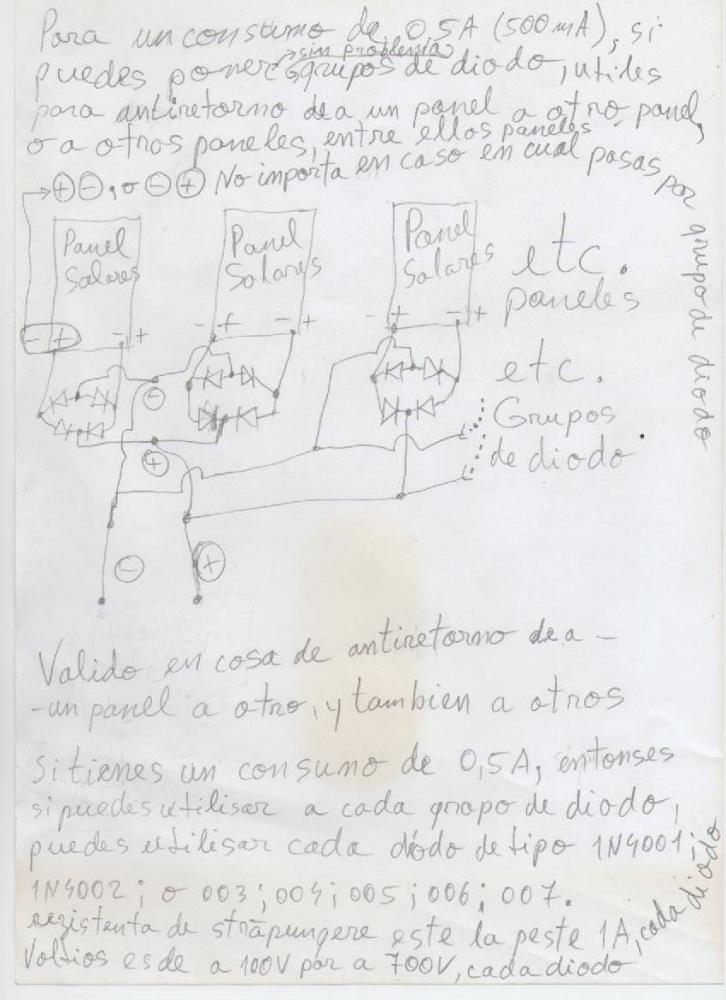 Para un consumo de 0,5A (500mA), si
puedes poner sin problema 3 grupos de diodo, utiles
para antiretorno de a un panel a otro panel,
o a otros paneles, entre ellos paneles
⊕⊖, o ⊖⊕ No importa en caso en cual pasas por grupo de diodo
Panel Solares
Panel Solares
Panel Solares
etc. paneles
- +
- +
- +
- +
- +
- +
etc.
Grupos
de diodo
⊖
⊕
⊖
⊕
Valido en cosa de antiretorno de a -
- un panel a otro, y tambien a otros
Si tienes un consumo de 0,5A, entonses
si puedes utilisar a cada grupo de diodo,
puedes utilisar cada diodo de tipo 1N4001;
1N4002; o 003; 004; 005; 006; 007.
rezistenta de străpungere este la peste 1A, cada diodo
Voltios es de a 100V por a 700V, cada diodo